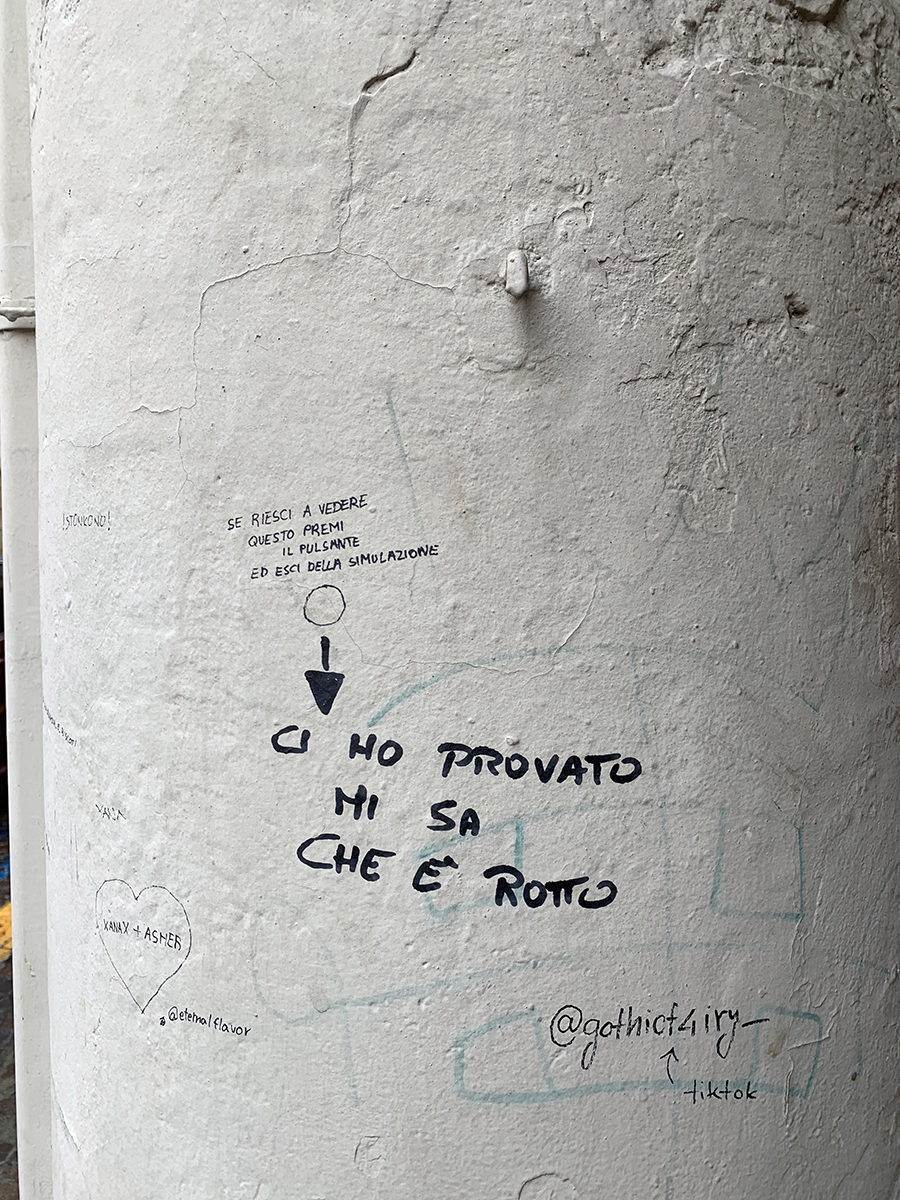 SE RIESCI A VEDERE
QUESTO PREMI
IL PULSANTE
ED ESCI DELLA SIMULAZIONE
CI HO PROVATO
MI SA
CHE E' ROTTO
XANAX + ASHER
@eternalflavor
@gothicf4iry_
tiktok